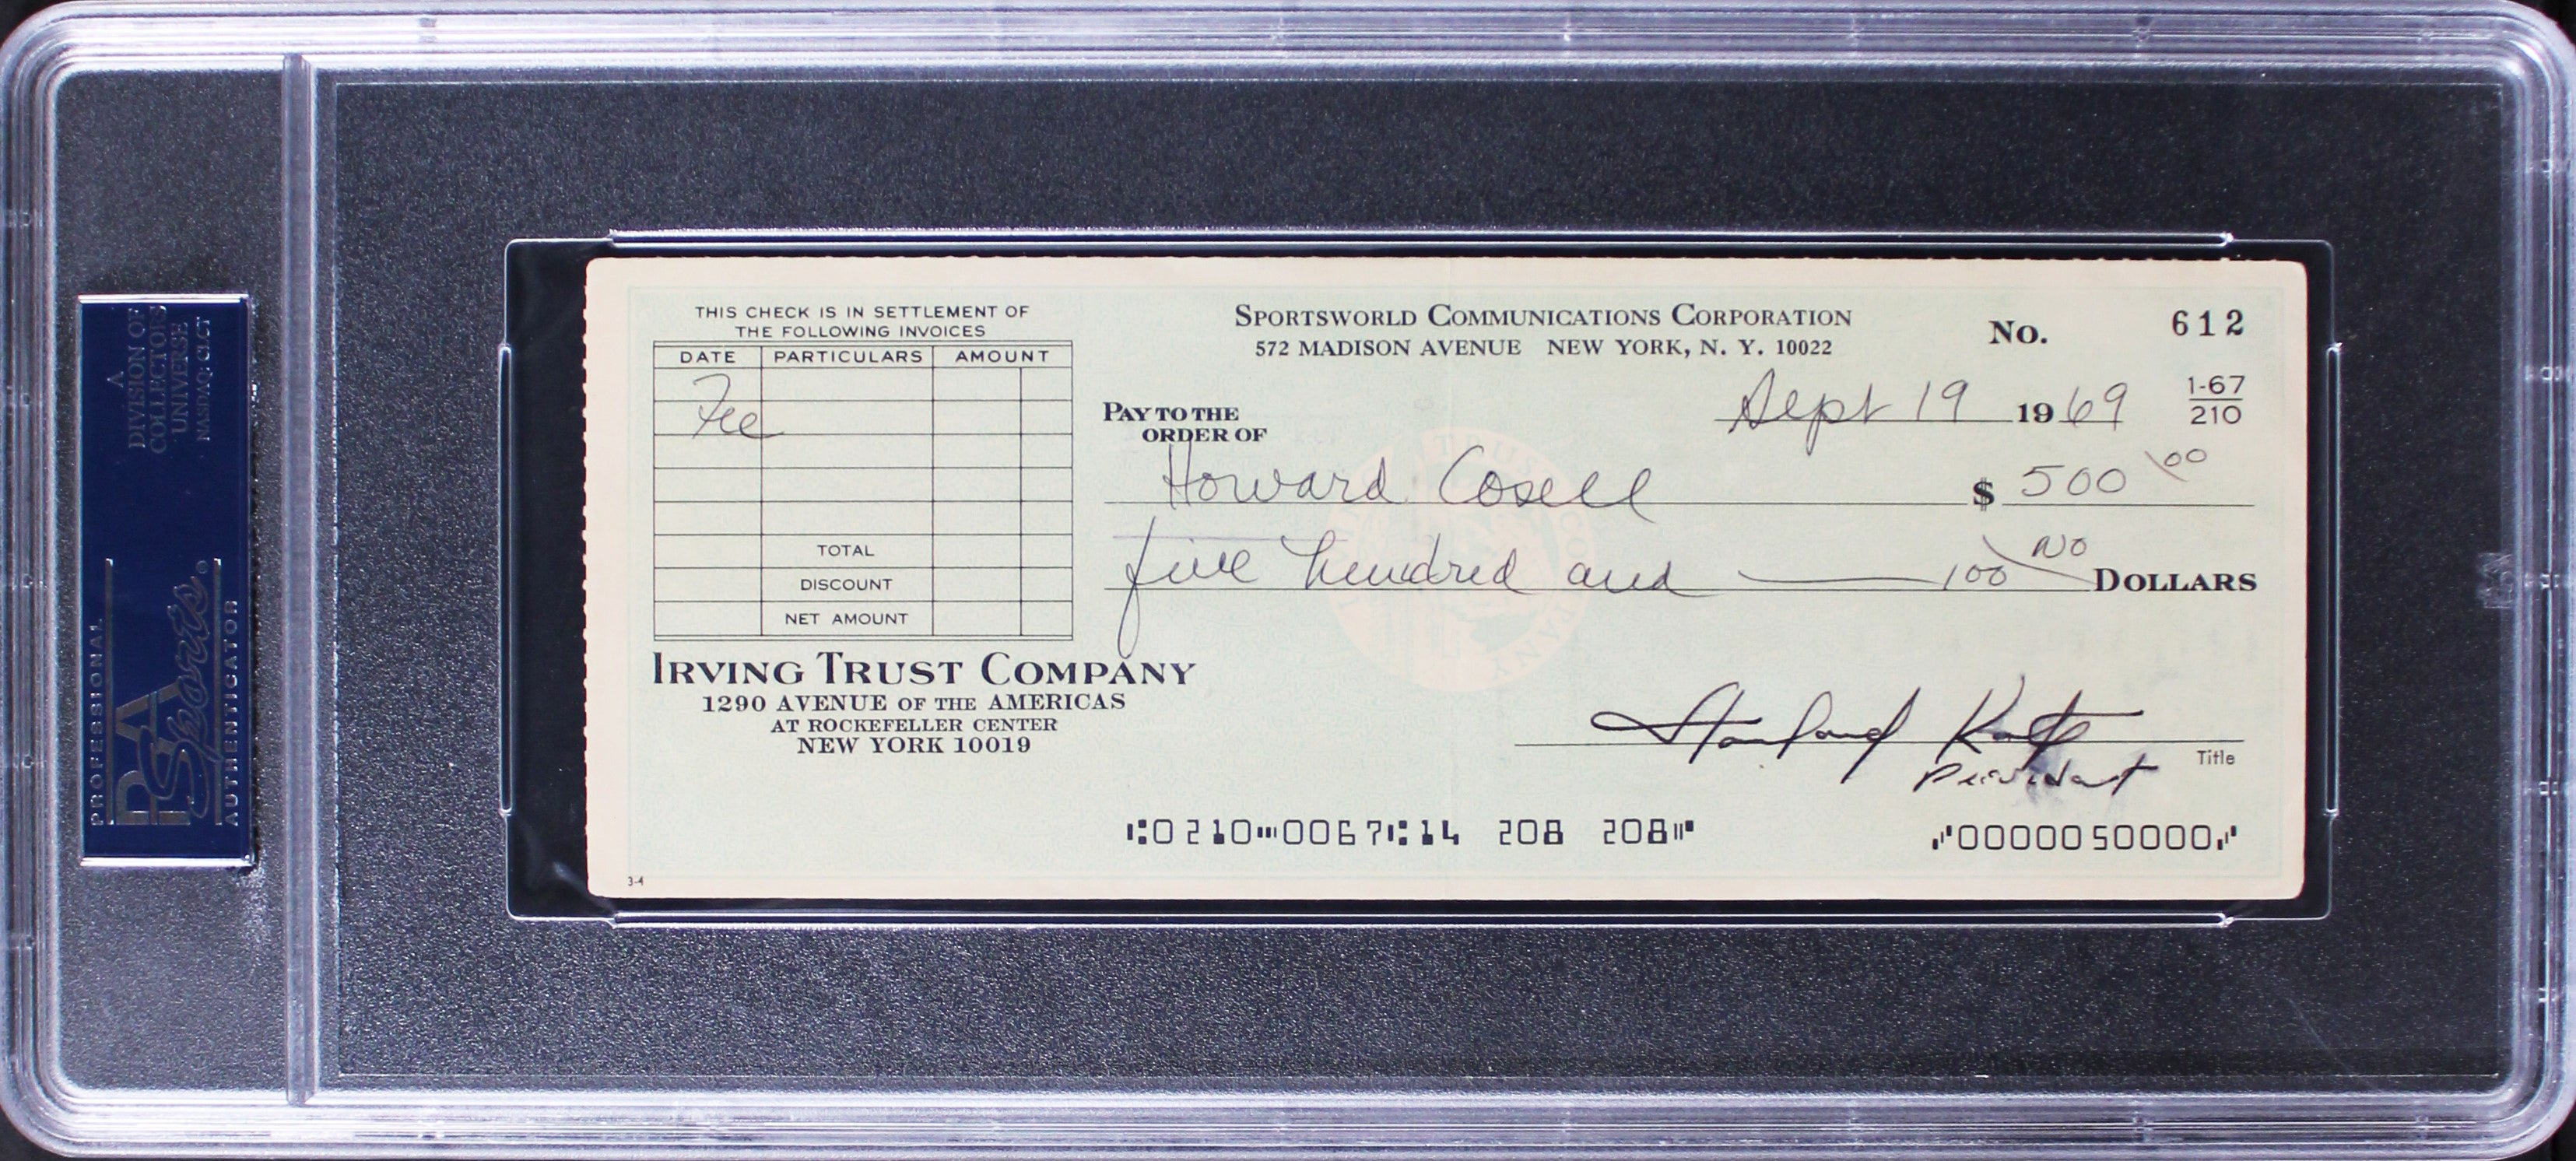 A
DIVISION OF
COLLECTORS
UNIVERSE
NASDAQ: CLCT
PROFESSIONAL
PSA
Sports®
AUTHENTICATOR
THIS CHECK IS IN SETTLEMENT OF
THE FOLLOWING INVOICES
DATE PARTICULARS AMOUNT
Fee
TOTAL
DISCOUNT
NET AMOUNT
SPORTSWORLD COMMUNICATIONS CORPORATION
572 MADISON AVENUE NEW YORK, N. Y. 10022
No. 612
Sept 19 1969
1-67
210
PAY TO THE
ORDER OF
Howard Cosell $ 500 00
five hundred and NO 100 DOLLARS
IRVING TRUST COMPANY
1290 AVENUE OF THE AMERICAS
AT ROCKEFELLER CENTER
NEW YORK 10019
Stanford Katz
President
Title
⑆0210⑉0067⑆14 208 208⑈ ⑇0000050000⑇
3-4